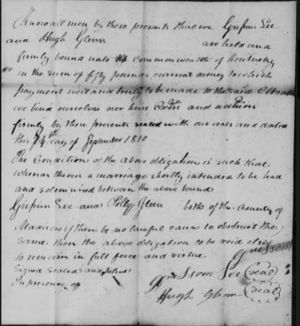 Know all men by these presents that we Gressum Lee
and Hugh Glenn are held and
firmly bound unto the Commonwealth of Kentucky
in the sum of fifty pounds current money to which
payment well and truly to be made to the said
we bind ourselves our heirs and
firmly by these presents sealed with our seals and dated
this 14th day of September 1810
The Condition of the above obligation is such that
whereas there is a marriage shortly intended to be had
and solemnized between the above bound
Lee and Polly Glenn both of the County of
Madison if there be no lawful cause to obstruct the
same then the above obligation to be void else
to remain in full force and virtue
Signed sealed
in presence of
Lee (seal)
Hugh Glenn (seal)